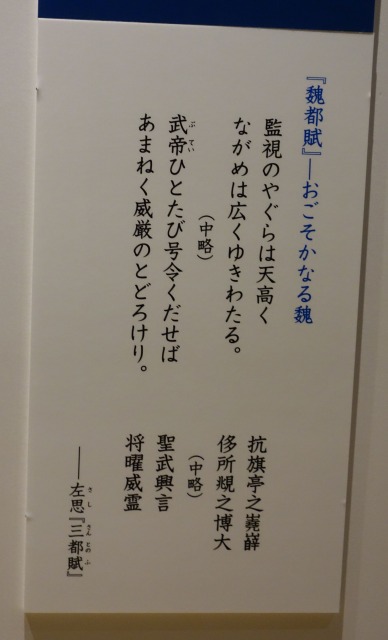 『魏都賦』―おごそかなる魏
監視のやぐらは天高く
ながめは広くゆきわたる。
（中略）
武帝ひとたび号令くだせば
ぶ てい
あまねく威厳のとどろけり。
抗旗亭之嶤嶭
侈所覬之博大
（中略）
聖武興言
将曜威霊
――左思『三都賦』
さ し さん と の ふ